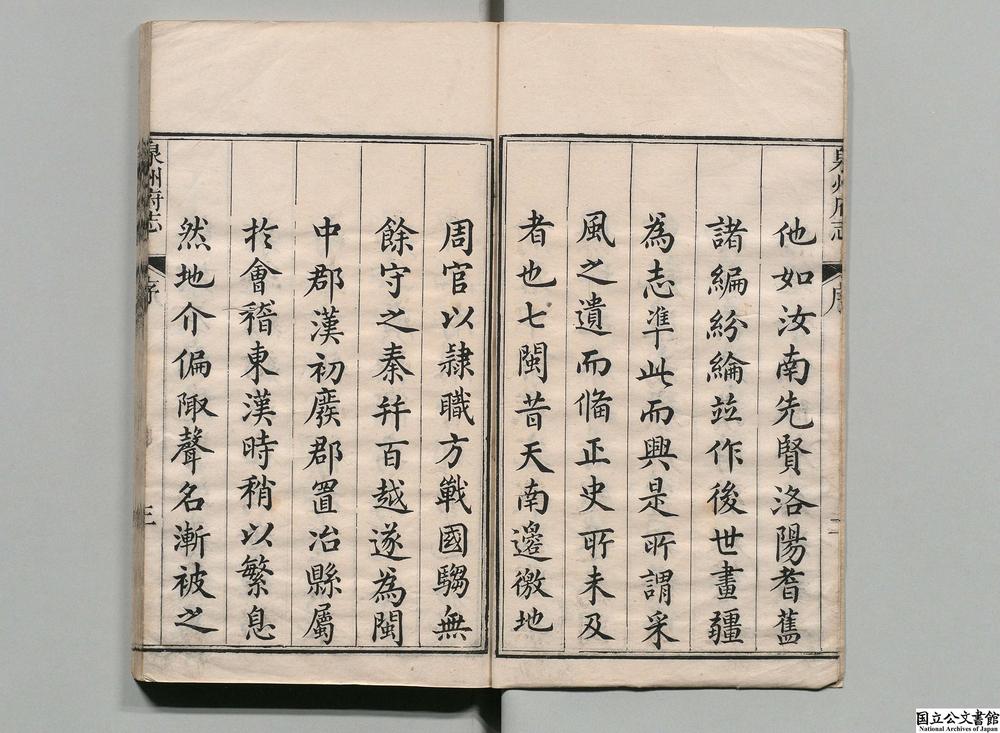 泉州府志
序
二
他如汝南先賢洛陽耆舊
諸編紛綸竝作後世畫疆
為志準此而興是所謂采
風之遺而俻正史所未及
者也七閩昔天南邊徼地
周官以隷職方戰國騶無
餘守之秦幷百越遂為閩
中郡漢初廢郡置冶縣屬
扵會稽東漢時稍以繁息
然地介偏陬聲名漸被之
泉州府志
序
三
国立公文書館
National Archives of Japan